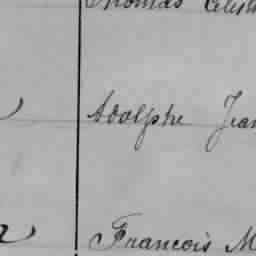 Thomas
Adolphe Jean
Francois M